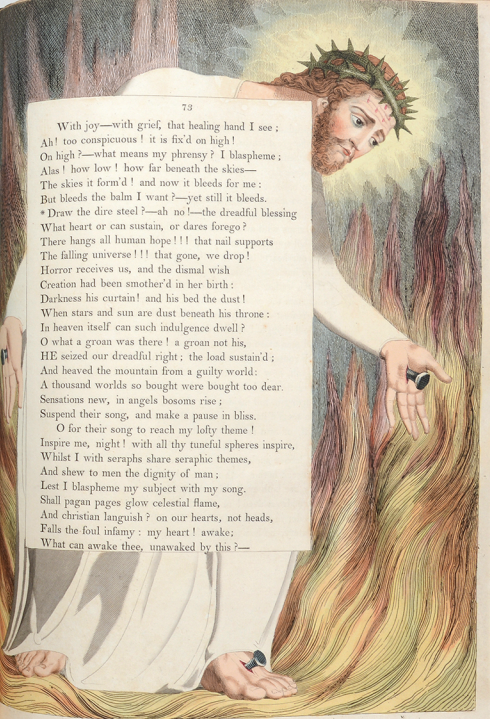 73
With joy—with grief, that healing hand I see ;
Ah! too conspicuous ! it is fix'd on high !
On high ?—what means my phrensy ? I blaspheme ;
Alas ! how low ! how far beneath the skies—
The skies it form'd ! and now it bleeds for me :
But bleeds the balm I want ?—yet still it bleeds.
* Draw the dire steel ?—ah no !—the dreadful blessing
What heart or can sustain, or dares forego ?
There hangs all human hope ! ! ! that nail supports
The falling universe ! ! ! that gone, we drop !
Horror receives us, and the dismal wish
Creation had been smother'd in her birth :
Darkness his curtain ! and his bed the dust !
When stars and sun are dust beneath his throne :
In heaven itself can such indulgence dwell ?
O what a groan was there ! a groan not his,
HE seized our dreadful right ; the load sustain'd ;
And heaved the mountain from a guilty world :
A thousand worlds so bought were bought too dear.
Sensations new, in angels bosoms rise ;
Suspend their song, and make a pause in bliss.
O for their song to reach my lofty theme !
Inspire me, night ! with all thy tuneful spheres inspire,
Whilst I with seraphs share seraphic themes,
And shew to men the dignity of man ;
Lest I blaspheme my subject with my song.
Shall pagan pages glow celestial flame,
And christian languish ? on our hearts, not heads,
Falls the foul infamy : my heart ! awake ;
What can awake thee, unawaked by this ?—